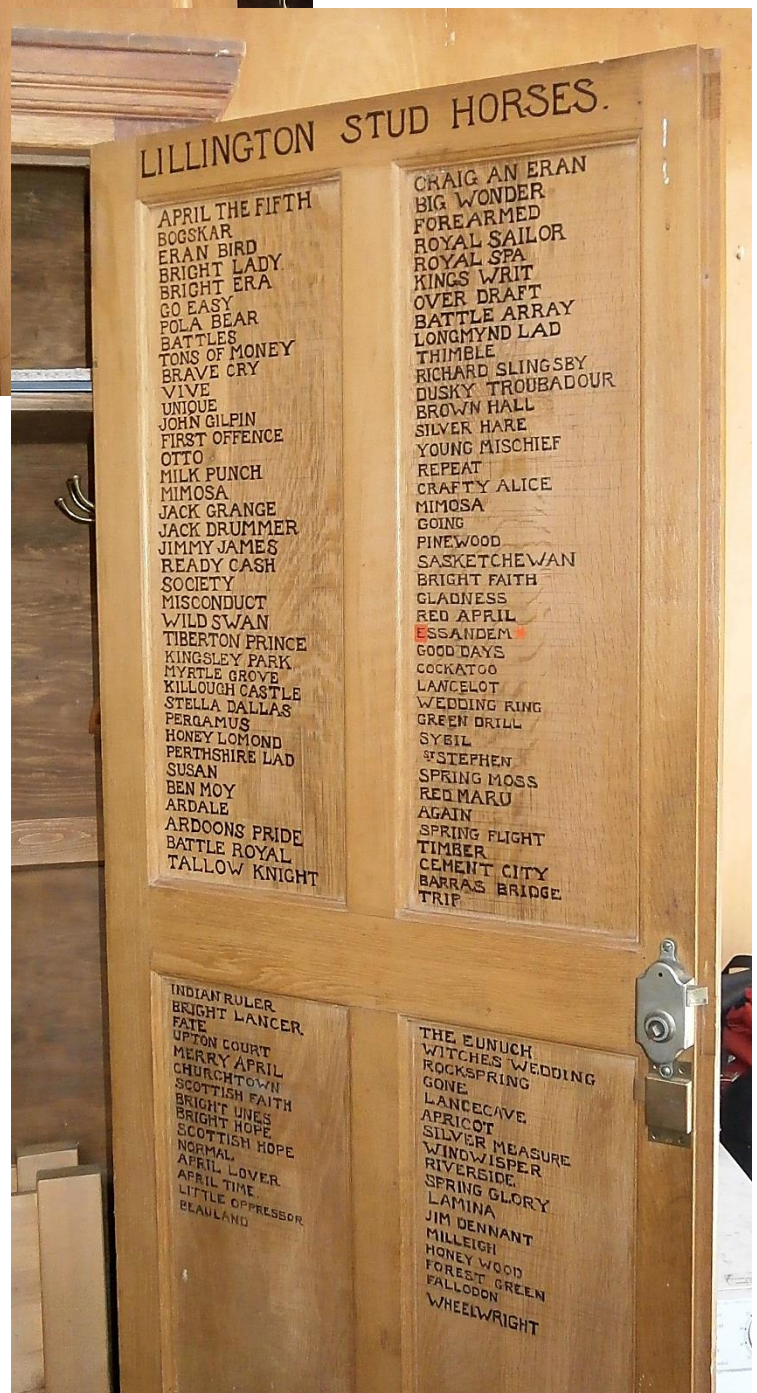 LILLINGTON STUD HORSES.
APRIL THE FIFTH
BOGSKAR
ERAN BIRD
BRIGHT LADY
BRIGHT ERA
GO EASY
POLA BEAR
BATTLES
TONS OF MONEY
BRAVE CRY
VIVE
UNIQUE
JOHN GILPIN
FIRST OFFENCE
OTTO
MILK PUNCH
MIMOSA
JACK GRANGE
JACK DRUMMER
JIMMY JAMES
READY CASH
SOCIETY
MISCONDUCT
WILD SWAN
TIBERTON PRINCE
KINGSLEY PARK
MYRTLE GROVE
KILLOUGH CASTLE
STELLA DALLAS
PERGAMUS
HONEY LOMOND
PERTHSHIRE LAD
SUSAN
BEN MOY
ARDALE
ARDOONS PRIDE
BATTLE ROYAL
TALLOW KNIGHT
CRAIG AN ERAN
BIG WONDER
FOREARMED
ROYAL SAILOR
ROYAL SPA
KINGS WRIT
OVER DRAFT
BATTLE ARRAY
LONGMYND LAD
THIMBLE
RICHARD SLINGSBY
DUSKY TROUBADOUR
BROWN HALL
SILVER HARE
YOUNG MISCHIEF
REPEAT
CRAFTY ALICE
MIMOSA
GOING
PINEWOOD
SASKETCHEWAN
BRIGHT FAITH
GLADNESS
RED APRIL
ESSANDEM
GOOD DAYS
COCKATOO
LANCELOT
WEDDING RING
GREEN DRILL
SYBIL
ST STEPHEN
SPRING MOSS
RED MARU
AGAIN
SPRING FLIGHT
TIMBER
CEMENT CITY
BARRAS BRIDGE
TRIP
INDIAN RULER
BRIGHT LANCER
FATE
UPTON COURT
MERRY APRIL
CHURCHTOWN
SCOTTISH FAITH
BRIGHT UNES
BRIGHT HOPE
SCOTTISH HOPE
NORMAL
APRIL LOVER
APRIL TIME
LITTLE OPPRESSOR
BEAULAND
THE EUNUCH
WITCHES WEDDING
ROCKSPRING
GONE
LANCECAVE
APRICOT
SILVER MEASURE
WINDWISPER
RIVERSIDE
SPRING GLORY
LAMINA
JIM DENNANT
MILLEIGH
HONEY WOOD
FOREST GREEN
FALLODON
WHEELWRIGHT